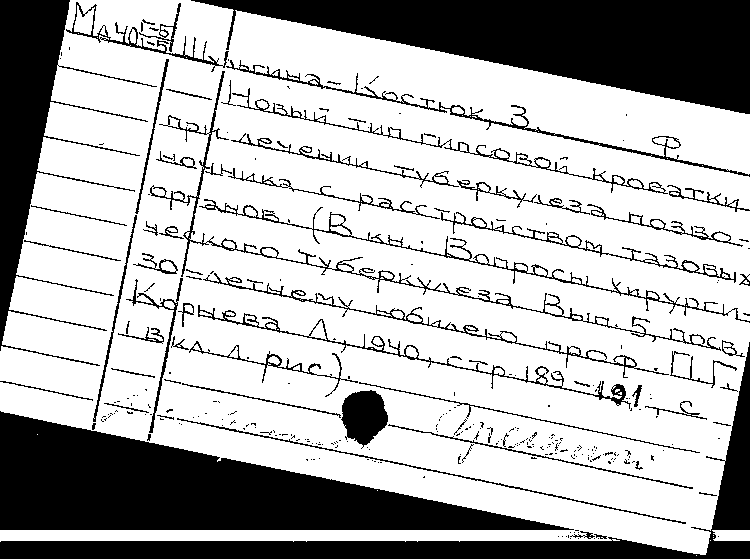 Мд40 Г-5
Г-5
Шульгина-Костюк, З. Ф.
Новый тип гипсовой кроватки
при лечении туберкулеза позво-
ночника с расстройством тазовых
органов. (В кн.: Вопросы хирурги-
ческого туберкулеза Вып. 5, посв.
30-летнему юбилею проф. П. Г.
Корнева Л., 1940, стр 189-191, с
1 вкл. л. рис).